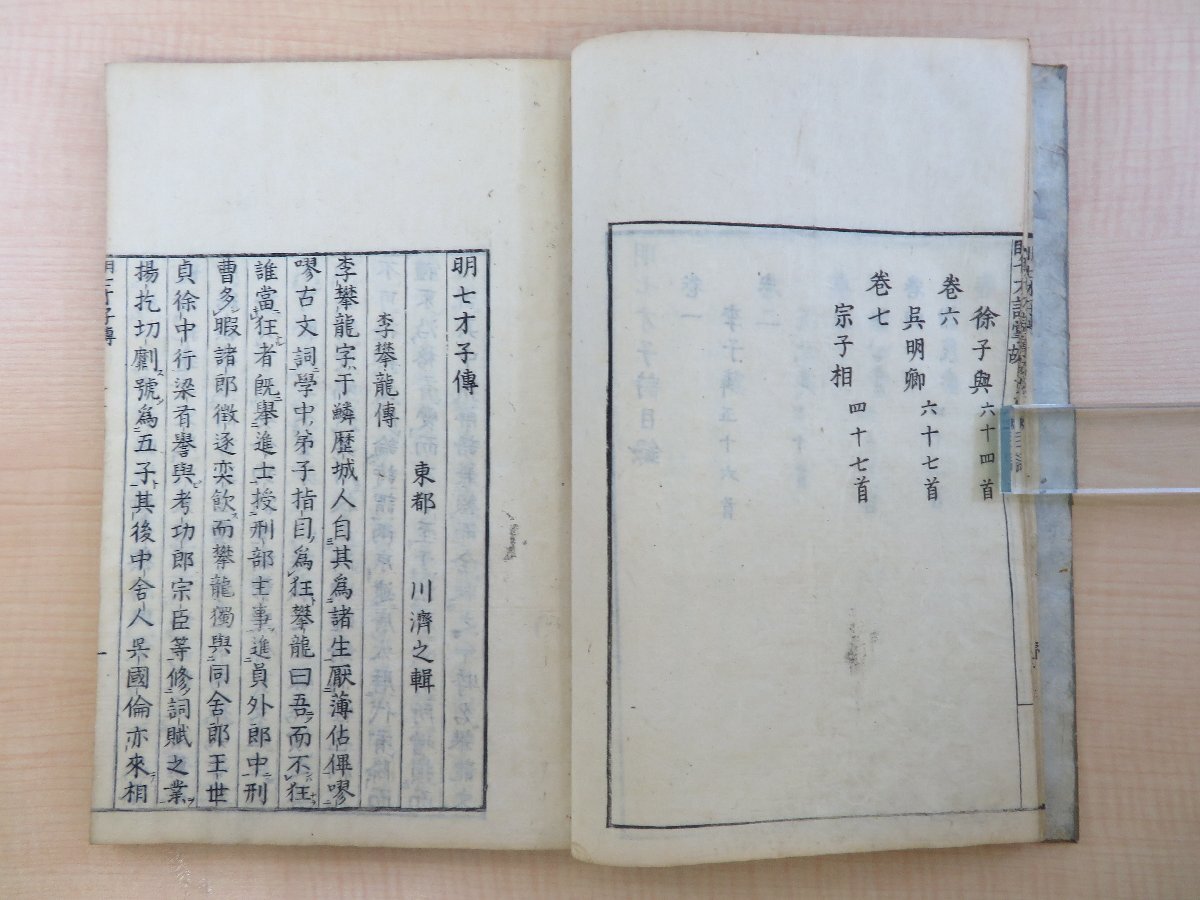 徐子與 六十四首
卷六
吳明卿 六十七首
卷七
宗子相 四十七首
明七才子傳
東都 川濟之輯
李攀龍傳
李攀龍字于鱗歷城人自其為諸生厭薄佔俾嘐
嘐古文詞學中弟子指曰為狂攀龍曰吾而不狂
誰當狂者既舉進士授刑部主事進員外郎中刑
曹多暇諸郎徵逐奕飲而攀龍獨與同舍郎王世
貞徐中行梁有譽與考功郎宗臣等修詞賦之業
揚扢切劘號為五子其後中舍人吳國倫亦來相
明七才子傳